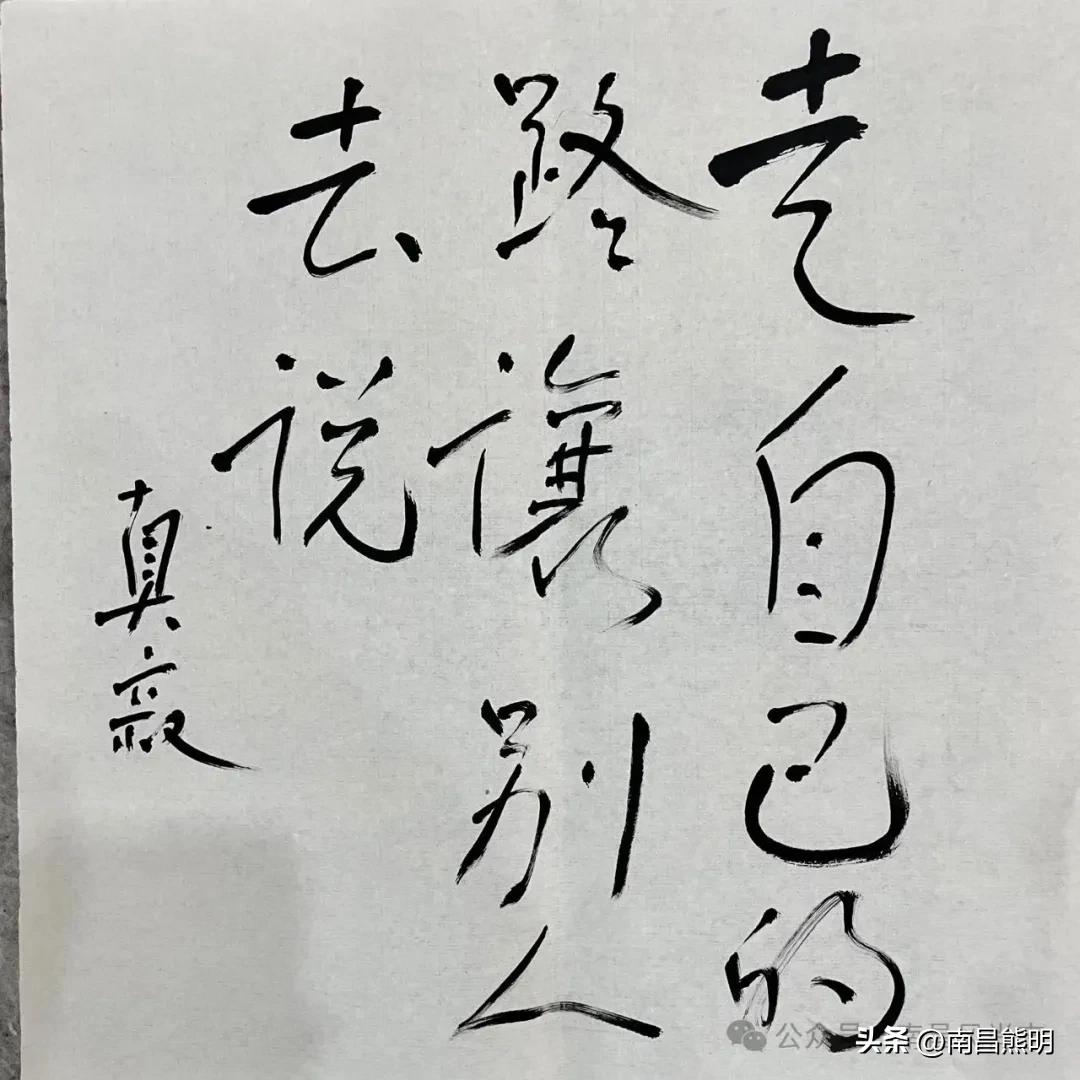 走自己的
路讓别人
去说
真寂
公众号
头条 @南昌熊明